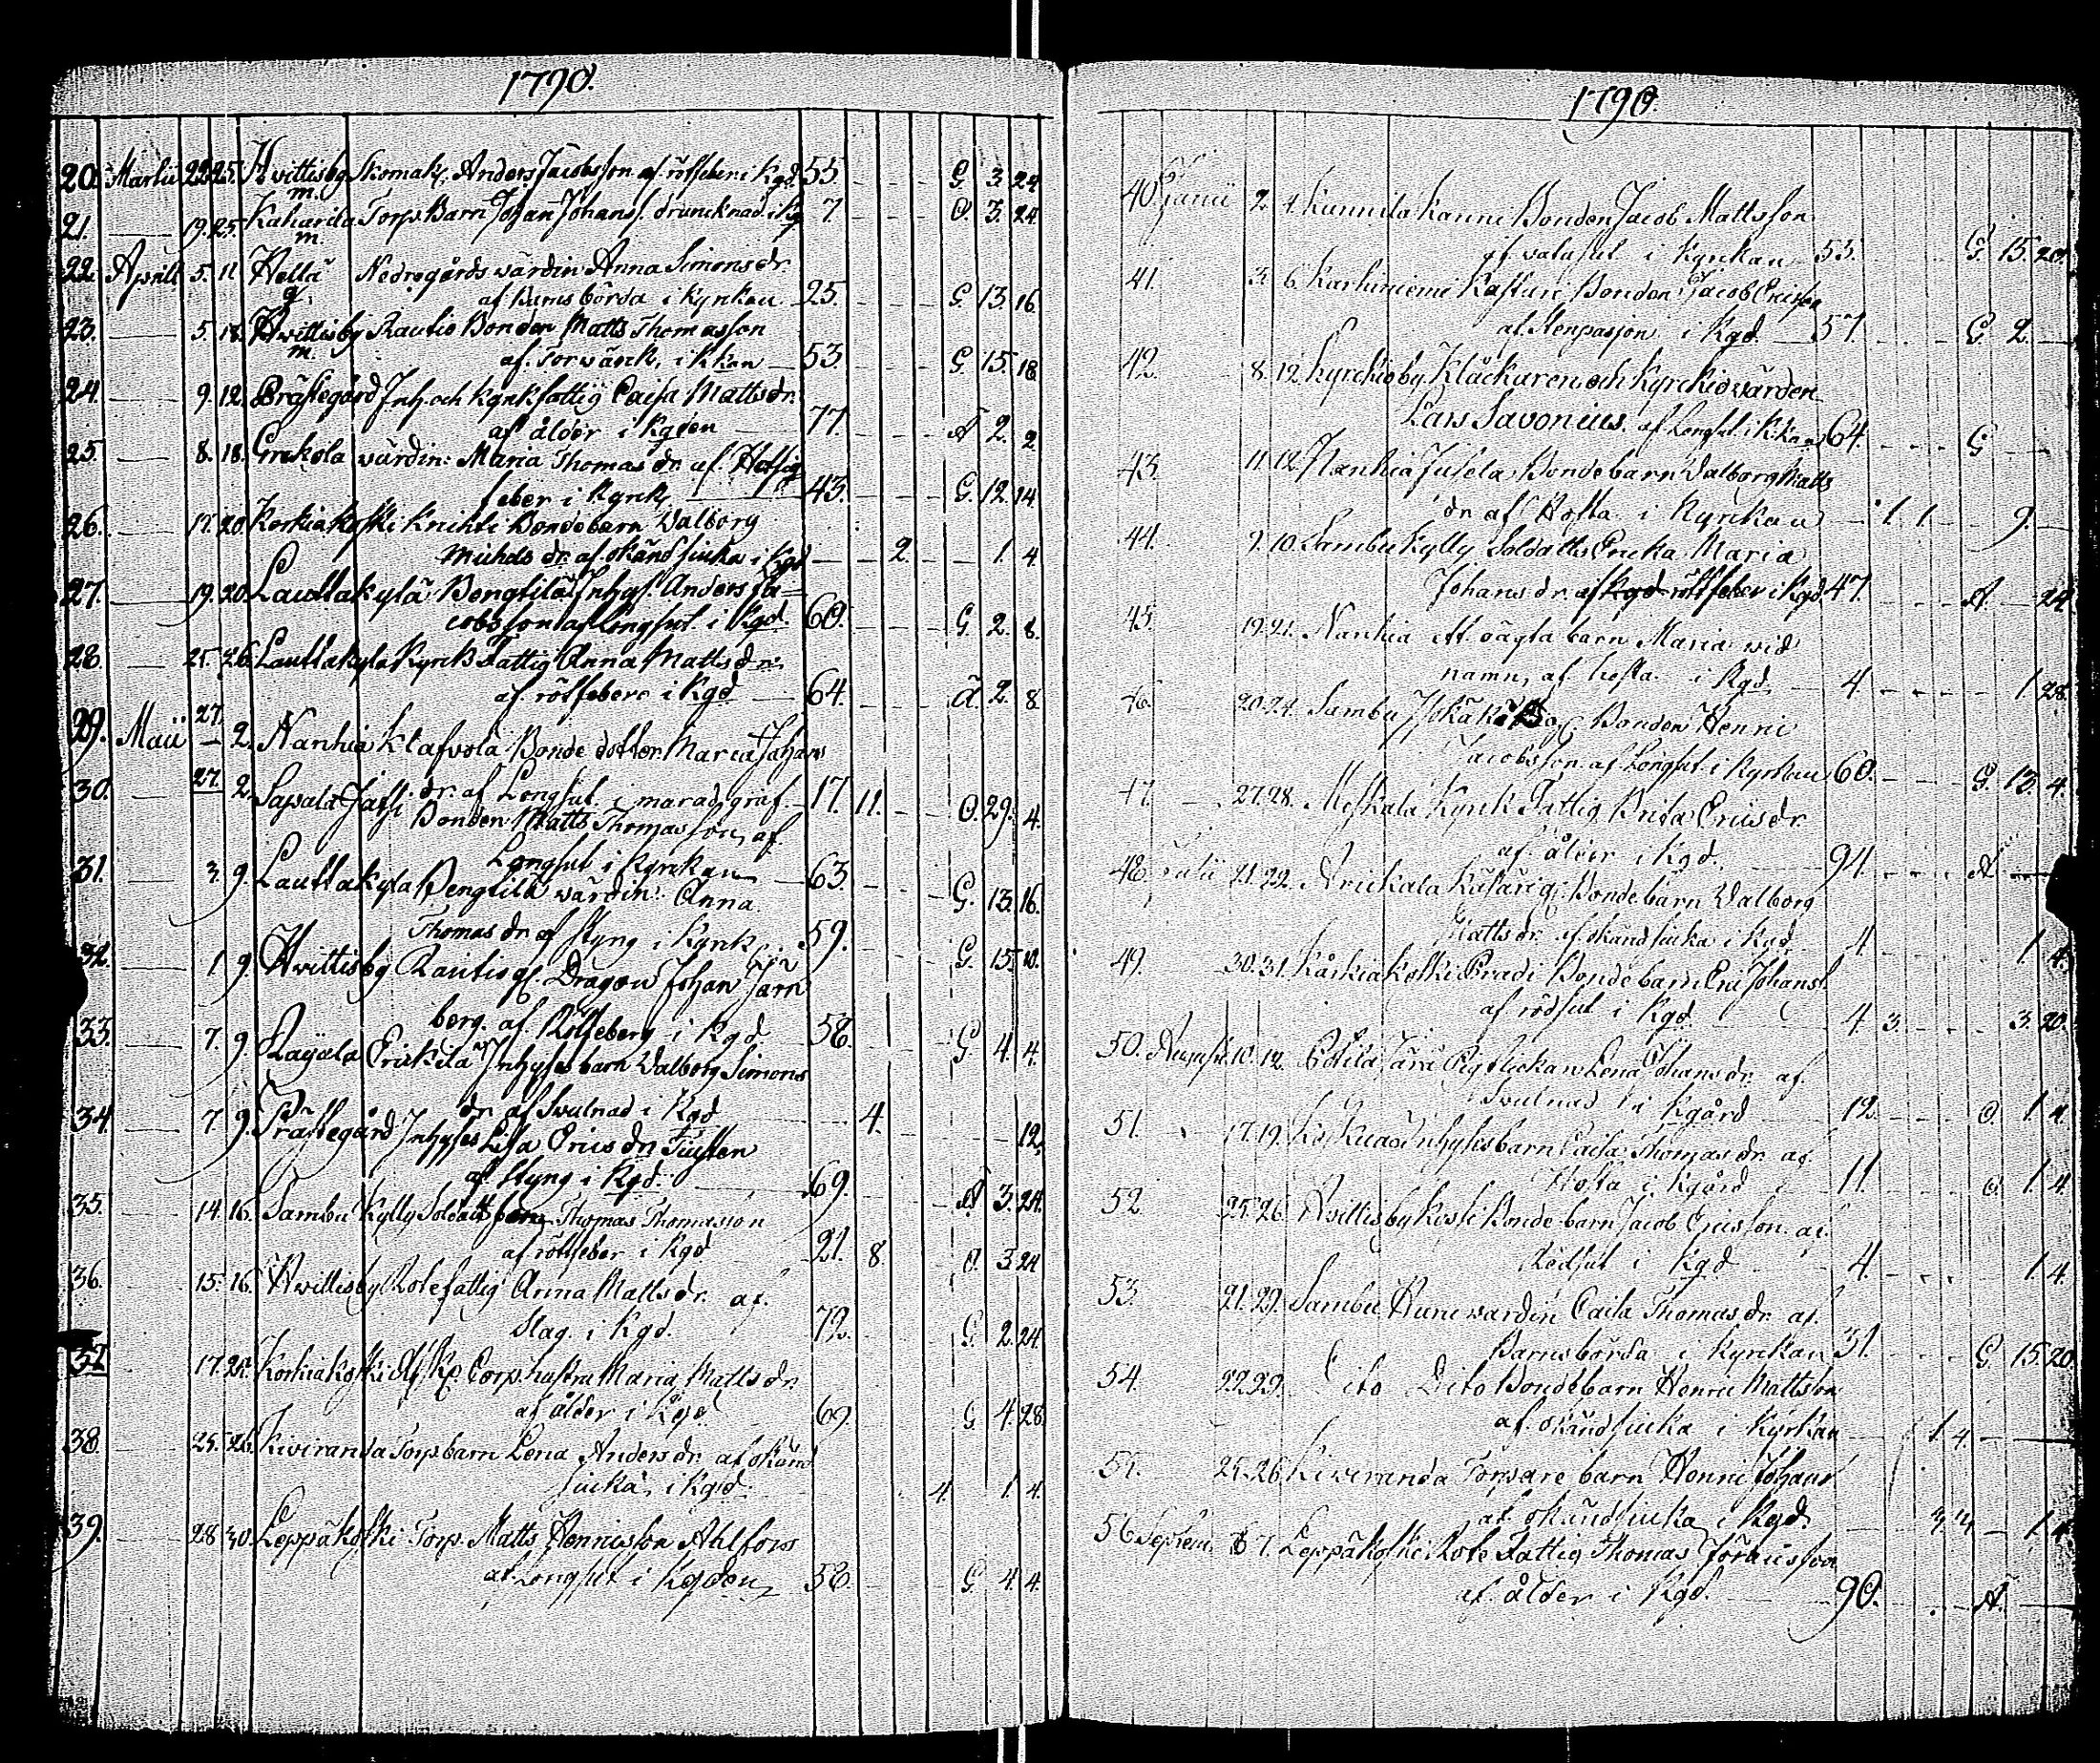 1790.
20. Martii 22. 25. Hvittisby Skomak. Anders Jacobsson af rötfeber i Kgd. 55. G. 3. 24
m.
21. 19. 25. Kaharila Torp. Barn Johan Johanss. druncknad i Kg 7 O. 3. 24.
m.
22. Aprill 5. 11 Hella Nedregårds värdin Anna Simons dr.
q. af Barnsbörda i Kyrkan 25. G. 13. 16.
23. 5. 18. Hvittisby Rautio Bonden Matts Thomasson
m. af Torwärck, i Kkan 53. G 15. 18.
24. 9. 12. Prästegård Inh. och Kyrkfattig Caisa Matts dr.
af ålder i Kgden 77. A 2. 2
25. 8. 18. Grekola värdin Maria Thomas dr. af Hetsig
feber i Kyrk. 43. G. 12. 14.
26. 17. 20. Korkiakoski Krihti Bondebarn Valborg
Michels dr. af okänd siuka i Kgd 2. 1. 4
27. 19. 20. Lauttakylä Bengtilä Inhys. Anders Ja-
cobsson af Longsot. i Kgd. 60. G. 2. 8.
28. 25. 26. Lauttakylä Kyrk Fattig Anna Matts dr.
af rötfeber i Kgd 64. Ä. 2. 8
29. Maii 27. 2. Nanhia Klafvola Bonde dotter Maria Johans
dr. af Longsot. i marad. graf 17. 11. O. 29. 4.
30. 27. 2. Sapala Bonden Matts Thomasson, af
Longsot i Kyrkan 63. G. 13. 16.
31. 3. 9. Lauttakyla Bengtilä värdin Anna
Thomas dr af styng i Kyrk 59. G. 15.
32. 1. 9. Hvittisby Rautio Dragon Johan Järn
berg. af Rötfeber i Kgd. 58. G 4. 4.
33. 7. 9. Raijala Erickila Inhyses barn Valborg Simons
dr. af Svulnad i Kgd 4. 12.
34. 7. 9. Prästegård Inhyses Lisa Erics dr.
af styng i Kgd. 69. A 3. 24.
35. 14. 16. Sambu Kylly Soldatt Thomas Thomasson
af rötfeber i Kgd 21. 8. O. 3. 24
36. 15. 16. Hvittisby Rotefattig Anna Matts dr. af
Slag. i Kgd. 72. G. 2. 24.
37. 17. 25. Korkiakoski Corp. hustru Maria Matts dr.
af ålder i Kgd 69. G 4. 28.
38. 25. 26. Kiviranda Torps barn Lena Anders dr. af okänd
siuka, i Kgd. 4. 1. 4.
39. 28 30. Leppäkoski Torp. Matts Henricsson Ahlfors
af Longsot i Kgden 58. G. 4. 4.
1790.
40. Junii 2. 4. Kunnila Kanni Bonden Jacob Mattsson
af i Kyrkan 55. G 15. 20.
41. 3. 6. Karhiniemi Bonden Jacob Ericsson
af i Kgd. 57. G 2.
42. 8. 12. Kyrckioby Klåckaren och Kyrckiovärden
Lars Savonius. af Longsot. i Kkan 64. G
43. 11. 12. Nanhia Jusela Bondebarn Valborg Matts
dr. af Hosta i Kyrkan 1. 1. 9.
44. 9. 10. Sambu Kylly Soldatts Encka Maria
Johans dr. af rötfeber i Kgd. 47. A. 24.
45. 19. 21. Nanhia ett oägta barn Maria vid
namn, af hosta i Kgd 4. 1. 28.
46. 20. 24. Sambu Bonden Henric
Jacobsson af Longsot. i Kyrkan 60. G. 13. 4.
47. 27. 28. Meskala Kyrk Fattig Brita Erics dr.
af ålder i Kgd. 94. A
48. Julii 21. 22. Bondebarn Valborg
Matts dr. af okänd siuka i Kgd 4. 1 4.
49. 30. 31. Korkiakoski Pradi Bondebarn Eric Johanss.
af rödsot i Kgd 4. 3. 3. 20.
50. August. 10. 12. Flickan Lena Johans dr. af
Svulnad i Kgård 12. O. 1. 4
51. 17. 19. Inhyses barn Caisa Thomas dr. af
Hosta i Kgård 11. O. 1. 4.
52. 25. 26. Hvittisby Bonde barn Jacob Ericsson af
Rödsot i Kgd 4. 1. 4.
53. 21. 29. Sambu värdin Caisa Thomas dr. af
Barnsbörda i Kyrkan 31. G. 15. 20.
54. 22. 29. Dito Dito Bondebarn Henric Mattsson
af okänd siuka i Kyrkan 1. 4.
55. 25. 26. Kiviranda Torpare barn Henric Johans
af okänd siuka i Kgd. 1. 4
56. Septem. 6 7. Leppäkoski Rote Fattig Thomas Jöransson
af ålder i Kgd. 90. A.